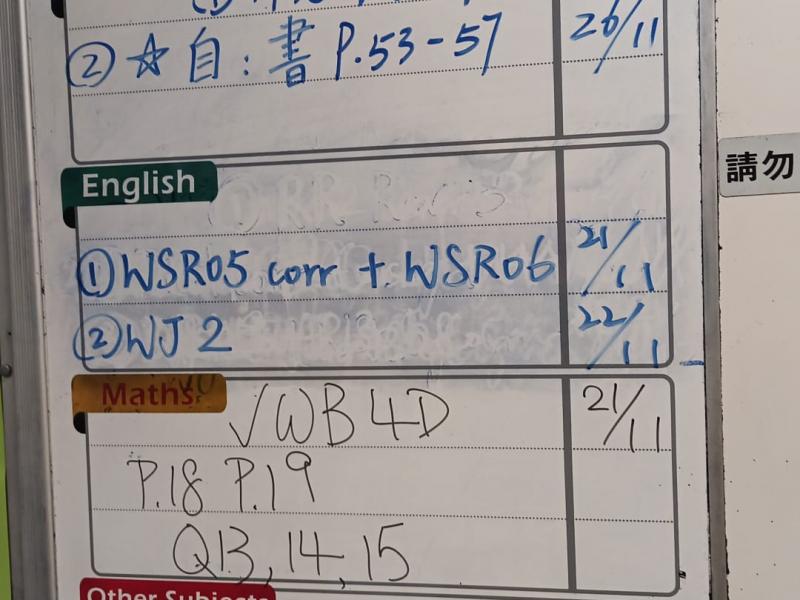 ② ☆ 自:書 P.53-57 26/11
English
① WSR05 corr + WSR06 21/11
② WJ 2 22/11
Maths
√ WB 4D 21/11
P.18 P.19
Q13, 14, 15
Other Subjects
請勿